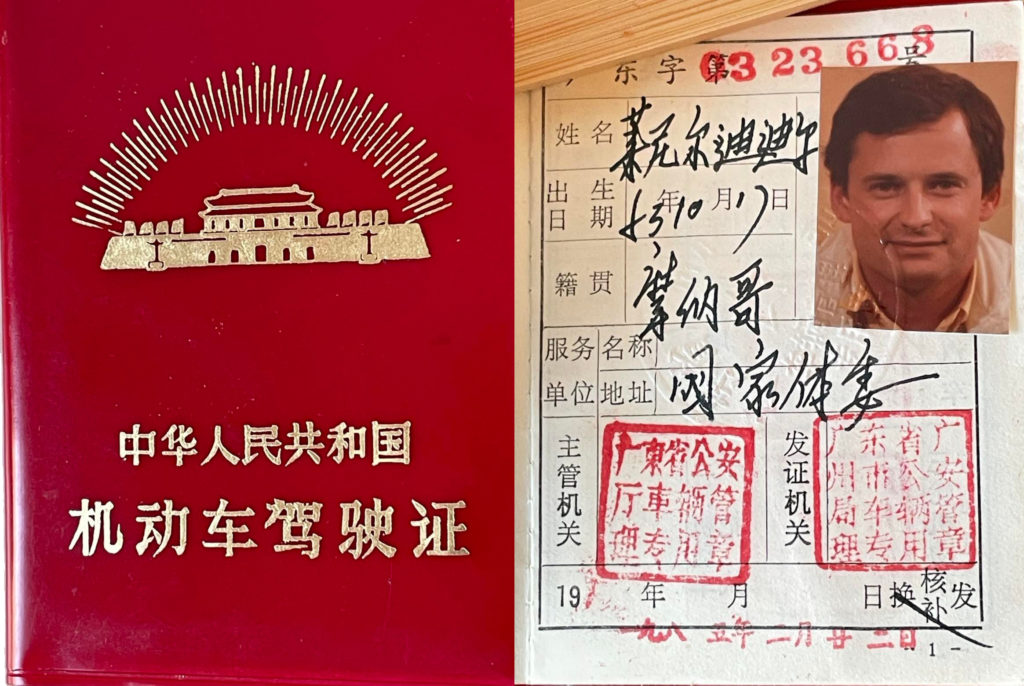 中华人民共和国
机动车驾驶证
广东字第0323668号
姓名 莱尼尔迪迪尔
出生日期 53年10月17日
籍贯 摩纳哥
服务单位 名称
地址 国家体委
主管机关
广東省公安
厅車辆管
理专用章
发证机关
广东省广
州市公安
局车辆管
理专用章
19 年 月 日换核补发
一九八五年二月廿二日
- 1 -